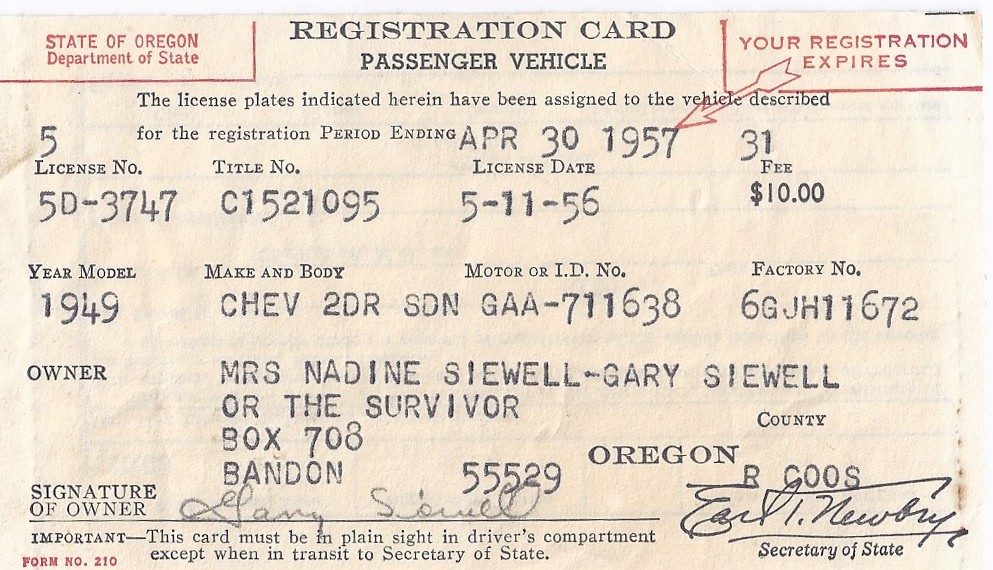 STATE OF OREGON
Department of State
REGISTRATION CARD
PASSENGER VEHICLE
YOUR REGISTRATION
EXPIRES
The license plates indicated herein have been assigned to the vehicle described
for the registration PERIOD ENDING APR 30 1957
5 31
LICENSE NO. TITLE NO. LICENSE DATE FEE
5D-3747 C1521095 5-11-56 $10.00
YEAR MODEL MAKE AND BODY MOTOR OR I.D. NO. FACTORY NO.
1949 CHEV 2DR SDN GAA-711638 6GJH11672
OWNER MRS NADINE SIEWELL-GARY SIEWELL
OR THE SURVIVOR
COUNTY
BOX 708
OREGON
BANDON 55529 R COOS
SIGNATURE
OF OWNER Gary Siewell
Earl T. Newbry
IMPORTANT—This card must be in plain sight in driver's compartment
except when in transit to Secretary of State.
Secretary of State
FORM NO. 210